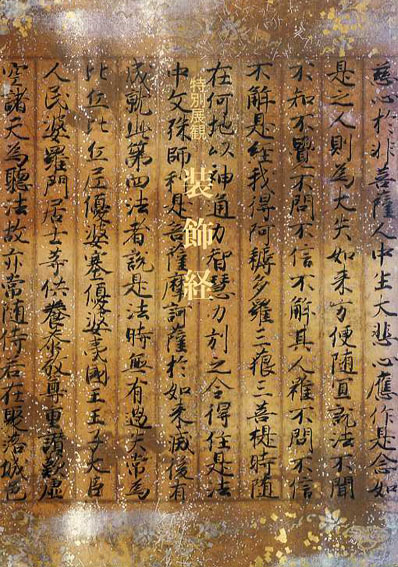 特別展観
装飾経
慈心於非菩薩人中生大悲心應作是念如
是之人則為大失如来方便随宜說法不聞
不知不覺不問不信不解其人雖不問不信
不解是経我得阿耨多羅三藐三菩提時随
在何地以神通力智慧力引之令得住是法
中文殊師利是菩薩摩訶薩於如来滅後有
成就此第四法者說是法時無有過失常為
比丘比丘尼優婆塞優婆夷國王王子大臣
人民婆羅門居士等供養恭敬尊重讃歎虚
空諸天為聽法故亦常随侍若在聚落城邑